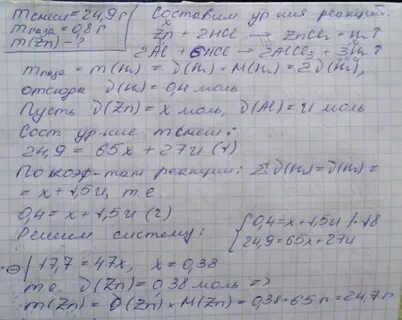 mсмеси = 24,9 г
mгаза = 0,8 г
m(Zn) - ?
Составим ур-ния реакций:
Zn + 2HCl → ZnCl₂ + H₂↑
2Al + 6HCl → 2AlCl₃ + 3H₂↑
mгаза = m(H₂) = ν(H₂) × M(H₂) = 2ν(H₂),
отсюда ν(H₂) = 0,4 моль
Пусть ν(Zn) = x моль, ν(Al) = y моль
Сост. ур-ние mсмеси:
24,9 = 65x + 27y (1)
По коэф-там реакции: Σν(H₂) = ν(H₂) =
= x + 1,5y, т.е.
0,4 = x + 1,5y (2)
Решаем систему:
{0,4 = x + 1,5y |·18
24,9 = 65x + 27y
⊖| 17,7 = 47x, x = 0,38
т.е. ν(Zn) = 0,38 моль ⇒
m(Zn) = ν(Zn) × M(Zn) = 0,38·65 г = 24,7 г